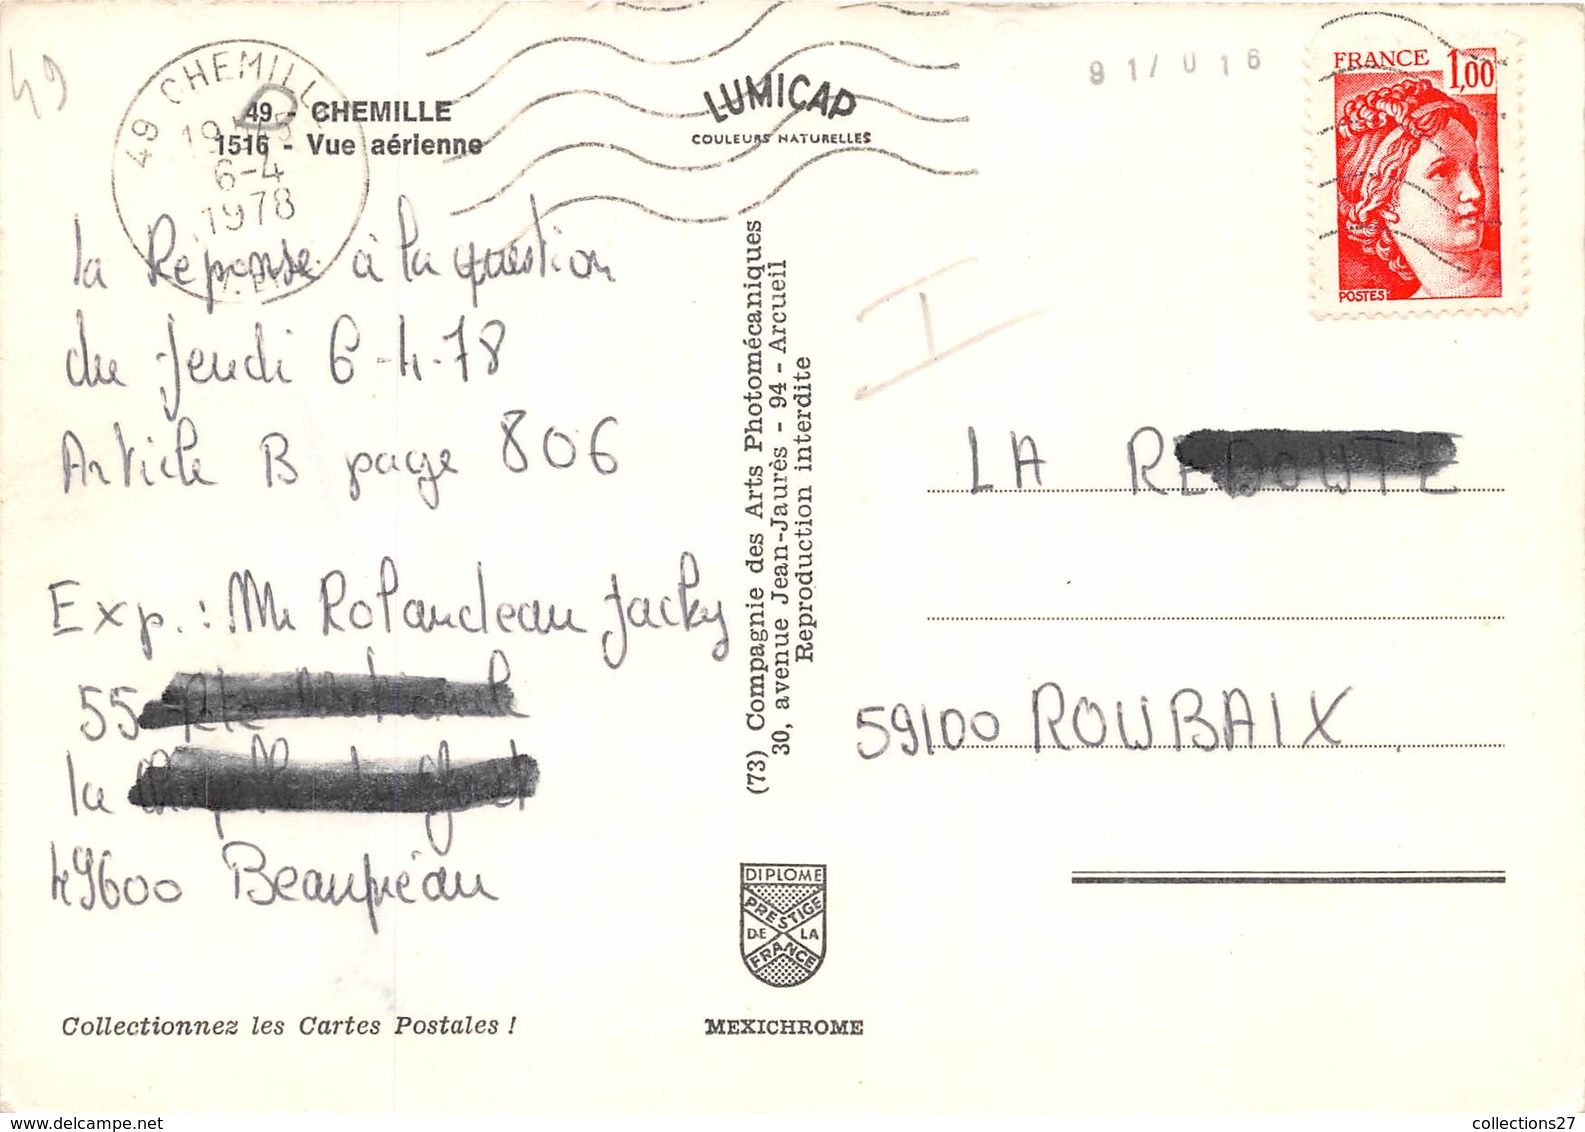 49
49 CHEMILLE
19H45
6-4
1978
49 - CHEMILLE
1516 - Vue aérienne
LUMICAP
COULEURS NATURELLES
91/016
FRANCE 1,00
POSTES
la Réponse à la question
du Jeudi 6-4-78
Article B page 806
Exp. : Mr Rolandeau Jacky
55
la
49600 Beaupréau
(73) Compagnie des Arts Photomécaniques
30, avenue Jean-Jaurès - 94 - Arcueil
Reproduction interdite
I
LA REDOUTE
59100 ROUBAIX
DIPLOME
PRESTIGE
DE LA
FRANCE
Collectionnez les Cartes Postales !
MEXICHROME
collections27